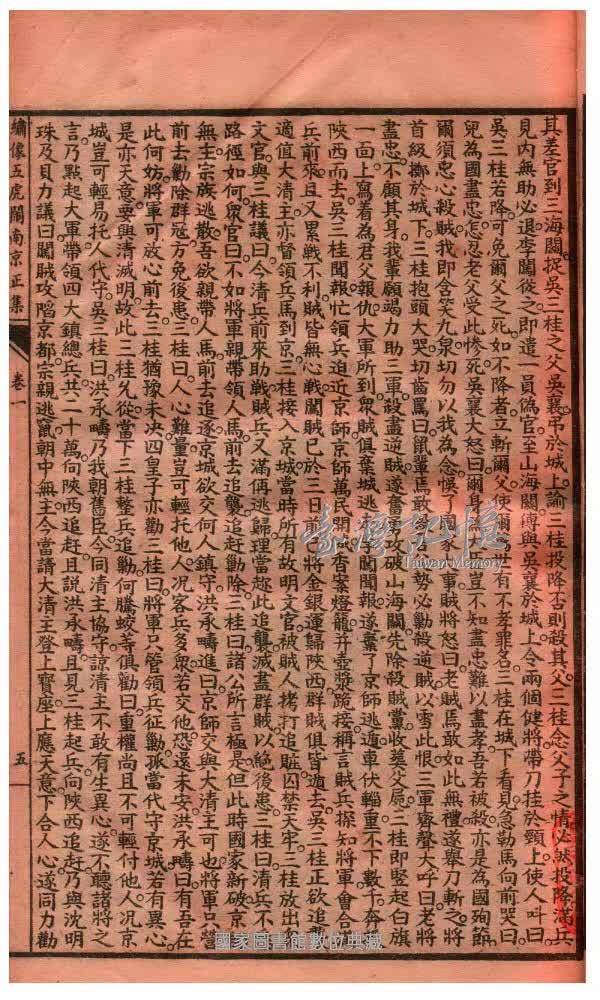 其差官到三海關捉吳三桂之父吳襄吊於城上諭三桂投降否則殺其父三桂念父子之情必然投降滿兵
見內無助必退李闖從之即遣一員偽官至山海關縛與吳襄於城上令兩個健將帶刀挂於頸上使人叫曰
吳三桂若降可免爾父之死如不降者立斬爾父使爾萬世有不孝罪名三桂在城下看見急勒馬向前哭曰
兒為國盡忠怎忍老父受此慘死吳襄大怒曰爾身為臣豈不知盡忠難以盡孝吾若被殺亦是為國殉節
爾須忠心殺賊我即含笑九泉切勿以我為念悞了國家大事賊將怒曰老賊焉敢如此無禮遂舉刀斬之將
首級擲於城下三桂抱頭大哭切齒罵曰鼠輩焉敢殺吾父勢必勦殺逆賊以雪此恨三軍齊聲大呼曰老將
盡忠不顧其身我輩願竭力助三軍殺盡逆賊遂奮勇攻破山海關先除殺賊黨收葬父屍三桂即竪起白旗
一面上寫着為君父報仇大軍所到眾賊俱棄城逃走李闖聞報遂棄了京師逃遁車伏輜重不下數千奔往
陝西而去吳三桂聞報忙領兵追近京師京師萬民開城香案燈籠并壺漿跪接稱言賊兵探知將軍會合清
兵前來且又累戰不利賊皆無心戰闖賊已於三日前將金銀運歸陝西群賊俱皆逃去吳三桂正欲追趕
適值大清主亦督領兵馬到京三桂接入京城當時所有故明文官被賊人拷打追贓囚禁天牢三桂放出眾
文官與三桂議曰今清兵前來助戰賊兵又滿俩逃歸理當趂此追襲滅盡群賊以絕後患三桂曰清兵不
路徑如何眾官曰不如將軍親帶領人馬前去追襲追赶勦除三桂曰諸公所言極是但此時國家新破京
無主宗族逃散吾欲親帶人馬前去追逐京城欲交何人鎮守洪承疇進曰京師交與大清主可也將軍只管
前去勦除群寇方免後患三桂曰人心難量豈可輕托他人况客兵多眾若交他恐還未安洪承疇曰有吾在
此何妨將軍可放心前去三桂猶豫未决四皇子亦勸三桂曰將軍只管領兵征勦孤當代守京城若有異心
是亦天意要興清滅明故此三桂允從當下三桂整兵追勦何騰蛟等俱勸曰重權尚且不可輕付他人况京
城豈可輕易托人代守吳三桂曰洪承疇乃我朝舊臣今同清主協守諒清主不敢有生異心遂不聽諸將之
言乃點起大軍帶領四大鎮總兵共二十萬向陝西追赶且說洪承疇且見三桂起兵向陝西追赶乃與沈明
珠及貝力議曰闖賊攻陷京都宗親逃竄朝中無主今當請大清主登上寶座上應天意下合人心遂同力勸
繡像五虎鬧南京正集
卷一
五
臺灣記憶
Taiwan Memory
國家圖書館數位典藏